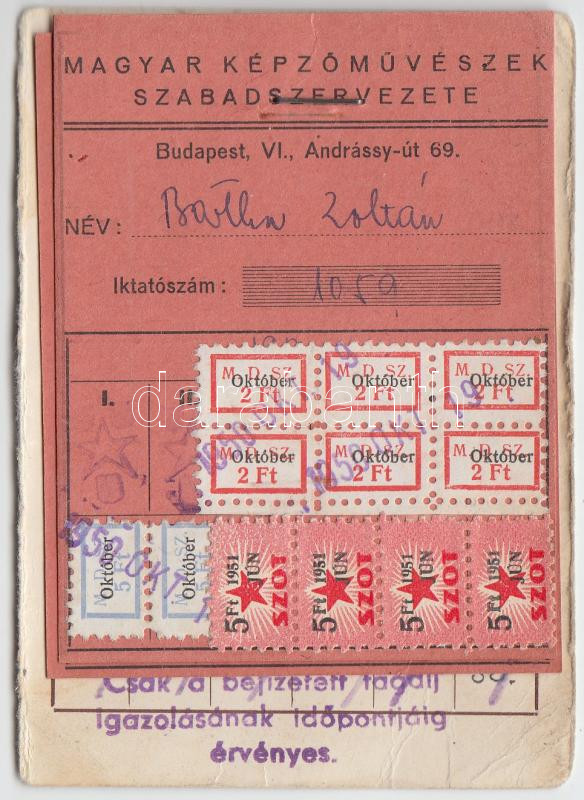 MAGYAR KÉPZŐMŰVÉSZEK
SZABADSZERVEZETE
Budapest, VI., Andrássy-út 69.
NÉV: Zoltán
Iktatószám: 1059
I.
M. D. SZ. M. D. SZ. M. D. SZ.
Október Október Október
2 Ft 2 Ft 2 Ft
M. D. SZ. M. D. SZ. M. D. SZ.
Október Október Október
2 Ft 2 Ft 2 Ft
1950 OKT 19
1950 OKT 19.
M. D. SZ. M. D. SZ.
Október Október
5 Ft 5 Ft
1950 OKT 1
5 Ft 1951 JUN SZOT
5 Ft 1951 JUN SZOT
5 Ft 1951 JUN SZOT
5 Ft 1951 JUN SZOT
Csak a befizetett tagdíj
igazolásának időpontjáig
érvényes.
darabanth